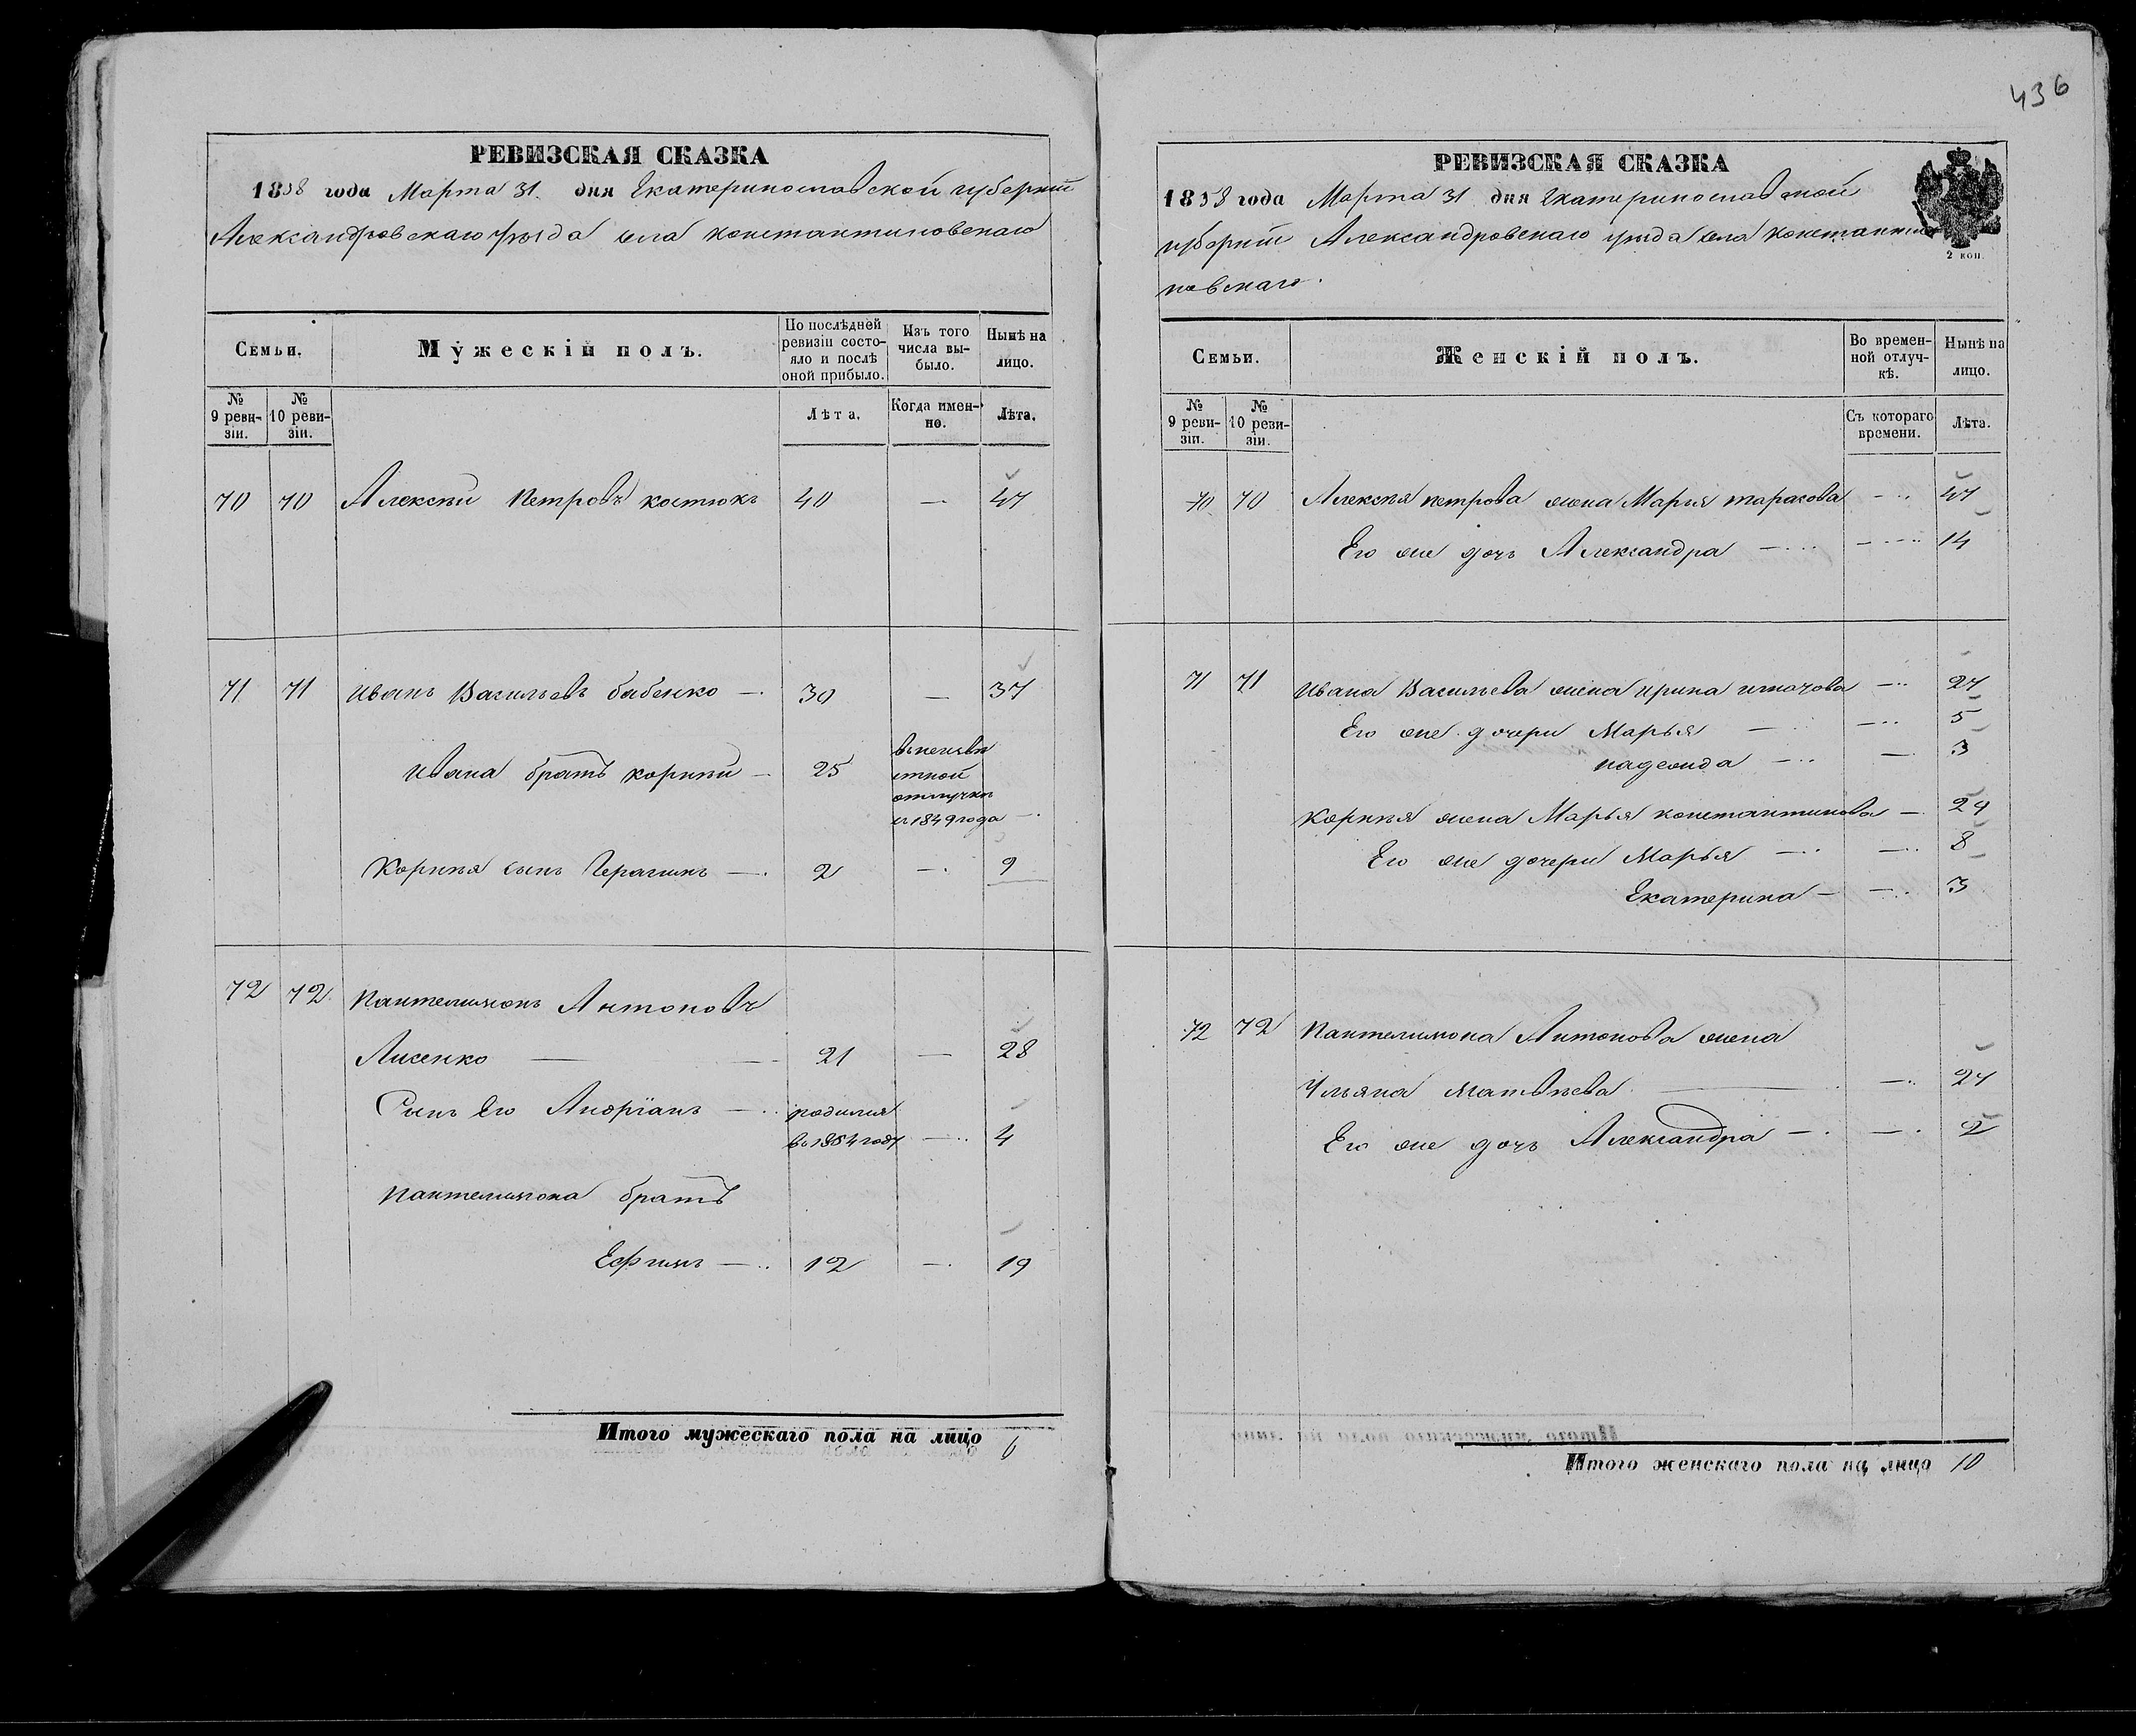 436
РЕВИЗСКАЯ СКАЗКА
1858 года Марта 31 дня Екатеринославской губернiи
Александровскаго уѣзда села Константиновскаго
Семьи. Мужескiй полъ. По послѣдней ревизiи состояло и послѣ оной прибыло. Изъ того числа выбыло. Нынѣ на лицо.
№ 9 ревизiи. № 10 ревизiи. Лѣта. Когда именно. Лѣта.
70 70 Алексѣй Петровъ Костюкъ 40 — 47
71 71 Иванъ Васильевъ бабенко —. 30 — 37
Ивана братъ Корнѣй — 25
отлучкѣ
съ 1849 года —.
Корнѣя сынъ Герасимъ —. 2 —. 9
72 72 Пантелимонъ Антоновъ
Лисенко — — 21 — 28
Сынъ Его Андрiанъ — родился
въ 1854 году — 4
Пантелимона братъ
Ефимъ — 12 —. 19
Итого мужескаго пола на лицо 6
РЕВИЗСКАЯ СКАЗКА
1858 года Марта 31 дня Екатеринославской
губернiи Александровскаго уѣзда села Константи
новскаго.
2 коп.
Семьи. Женскiй полъ. Во временной отлучкѣ. Нынѣ на лицо.
№ 9 ревизiи. № 10 ревизiи. Съ котораго времени. Лѣта.
70 70 Алексѣя Петрова жена Марья Тарасова — 47
Его же дочь Александра — — 14
71 71 Ивана Васильева жена Ирина — 27
Его же дочери Марья — — 5
Надежда — — 3
Корнѣя жена Марья Константинова — 29
Его же дочери Марья — — 8
Екатерина — — 3
72 72 Пантелимона Антонова жена
Ульяна Матвѣева — — 27
Его же дочь Александра — —. 2
Итого женскаго пола на лицо 10